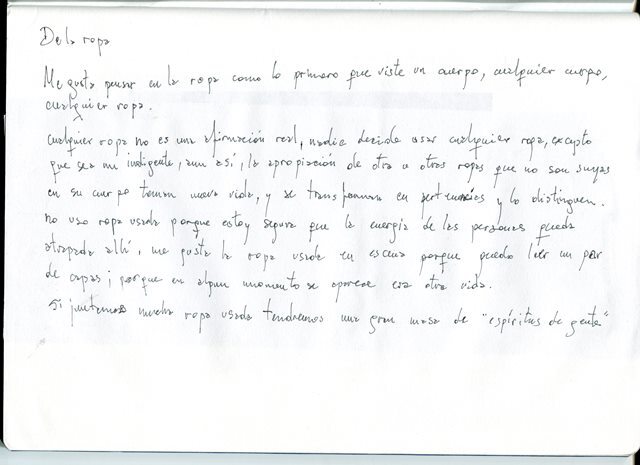 De la ropa
Me gusta pensar en la ropa como lo primero que viste un cuerpo, cualquier cuerpo,
cualquier ropa.
Cualquier ropa no es una afirmación real, nadie decide usar cualquier ropa, excepto
que sea un indigente, aun así, la apropiación de otra u otras ropas que no son suyas
en su cuerpo toman nueva vida, y se transforman en pertenencias y lo distinguen.
No uso ropa usada porque estoy segura que la energía de las personas queda
atrapada allí, me gusta la ropa usada en escena porque puedo leer un par
de capas; porque en algun momento se aparece esa otra vida.
Si juntamos mucha ropa usada tendremos una gran masa de "espíritus de gente"